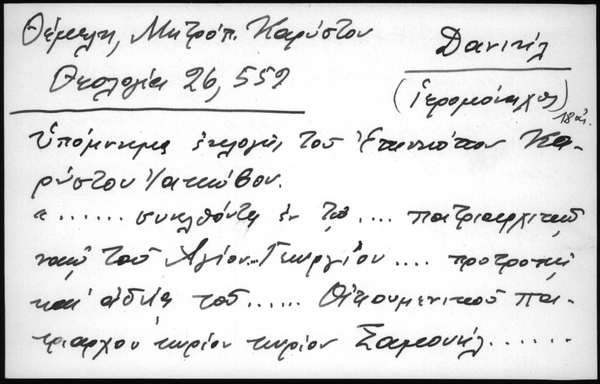 Θέμελη, Μητρόπ. Καρύστου
Θεολογία 26, 559
Δανιήλ
(Ἱερομόναχος)
18 αἰ.
Ὑπόμνημα ἐκλογῆς τοῦ Ἐπισκόπου Κα-
ρύστου Ἰακώβου.
«...... συνελθόντες ἐν τῷ .... πατριαρχικῷ
ναῷ τοῦ Ἁγίου... Γεωργίου .... προτροπῇ
καὶ ἀδείᾳ τοῦ ...... Οἰκουμενικοῦ Πα-
τριάρχου κυρίου κυρίου Σαμουήλ ......